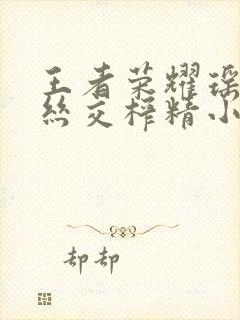 王者荣耀瑶
丝交榨精小
却却